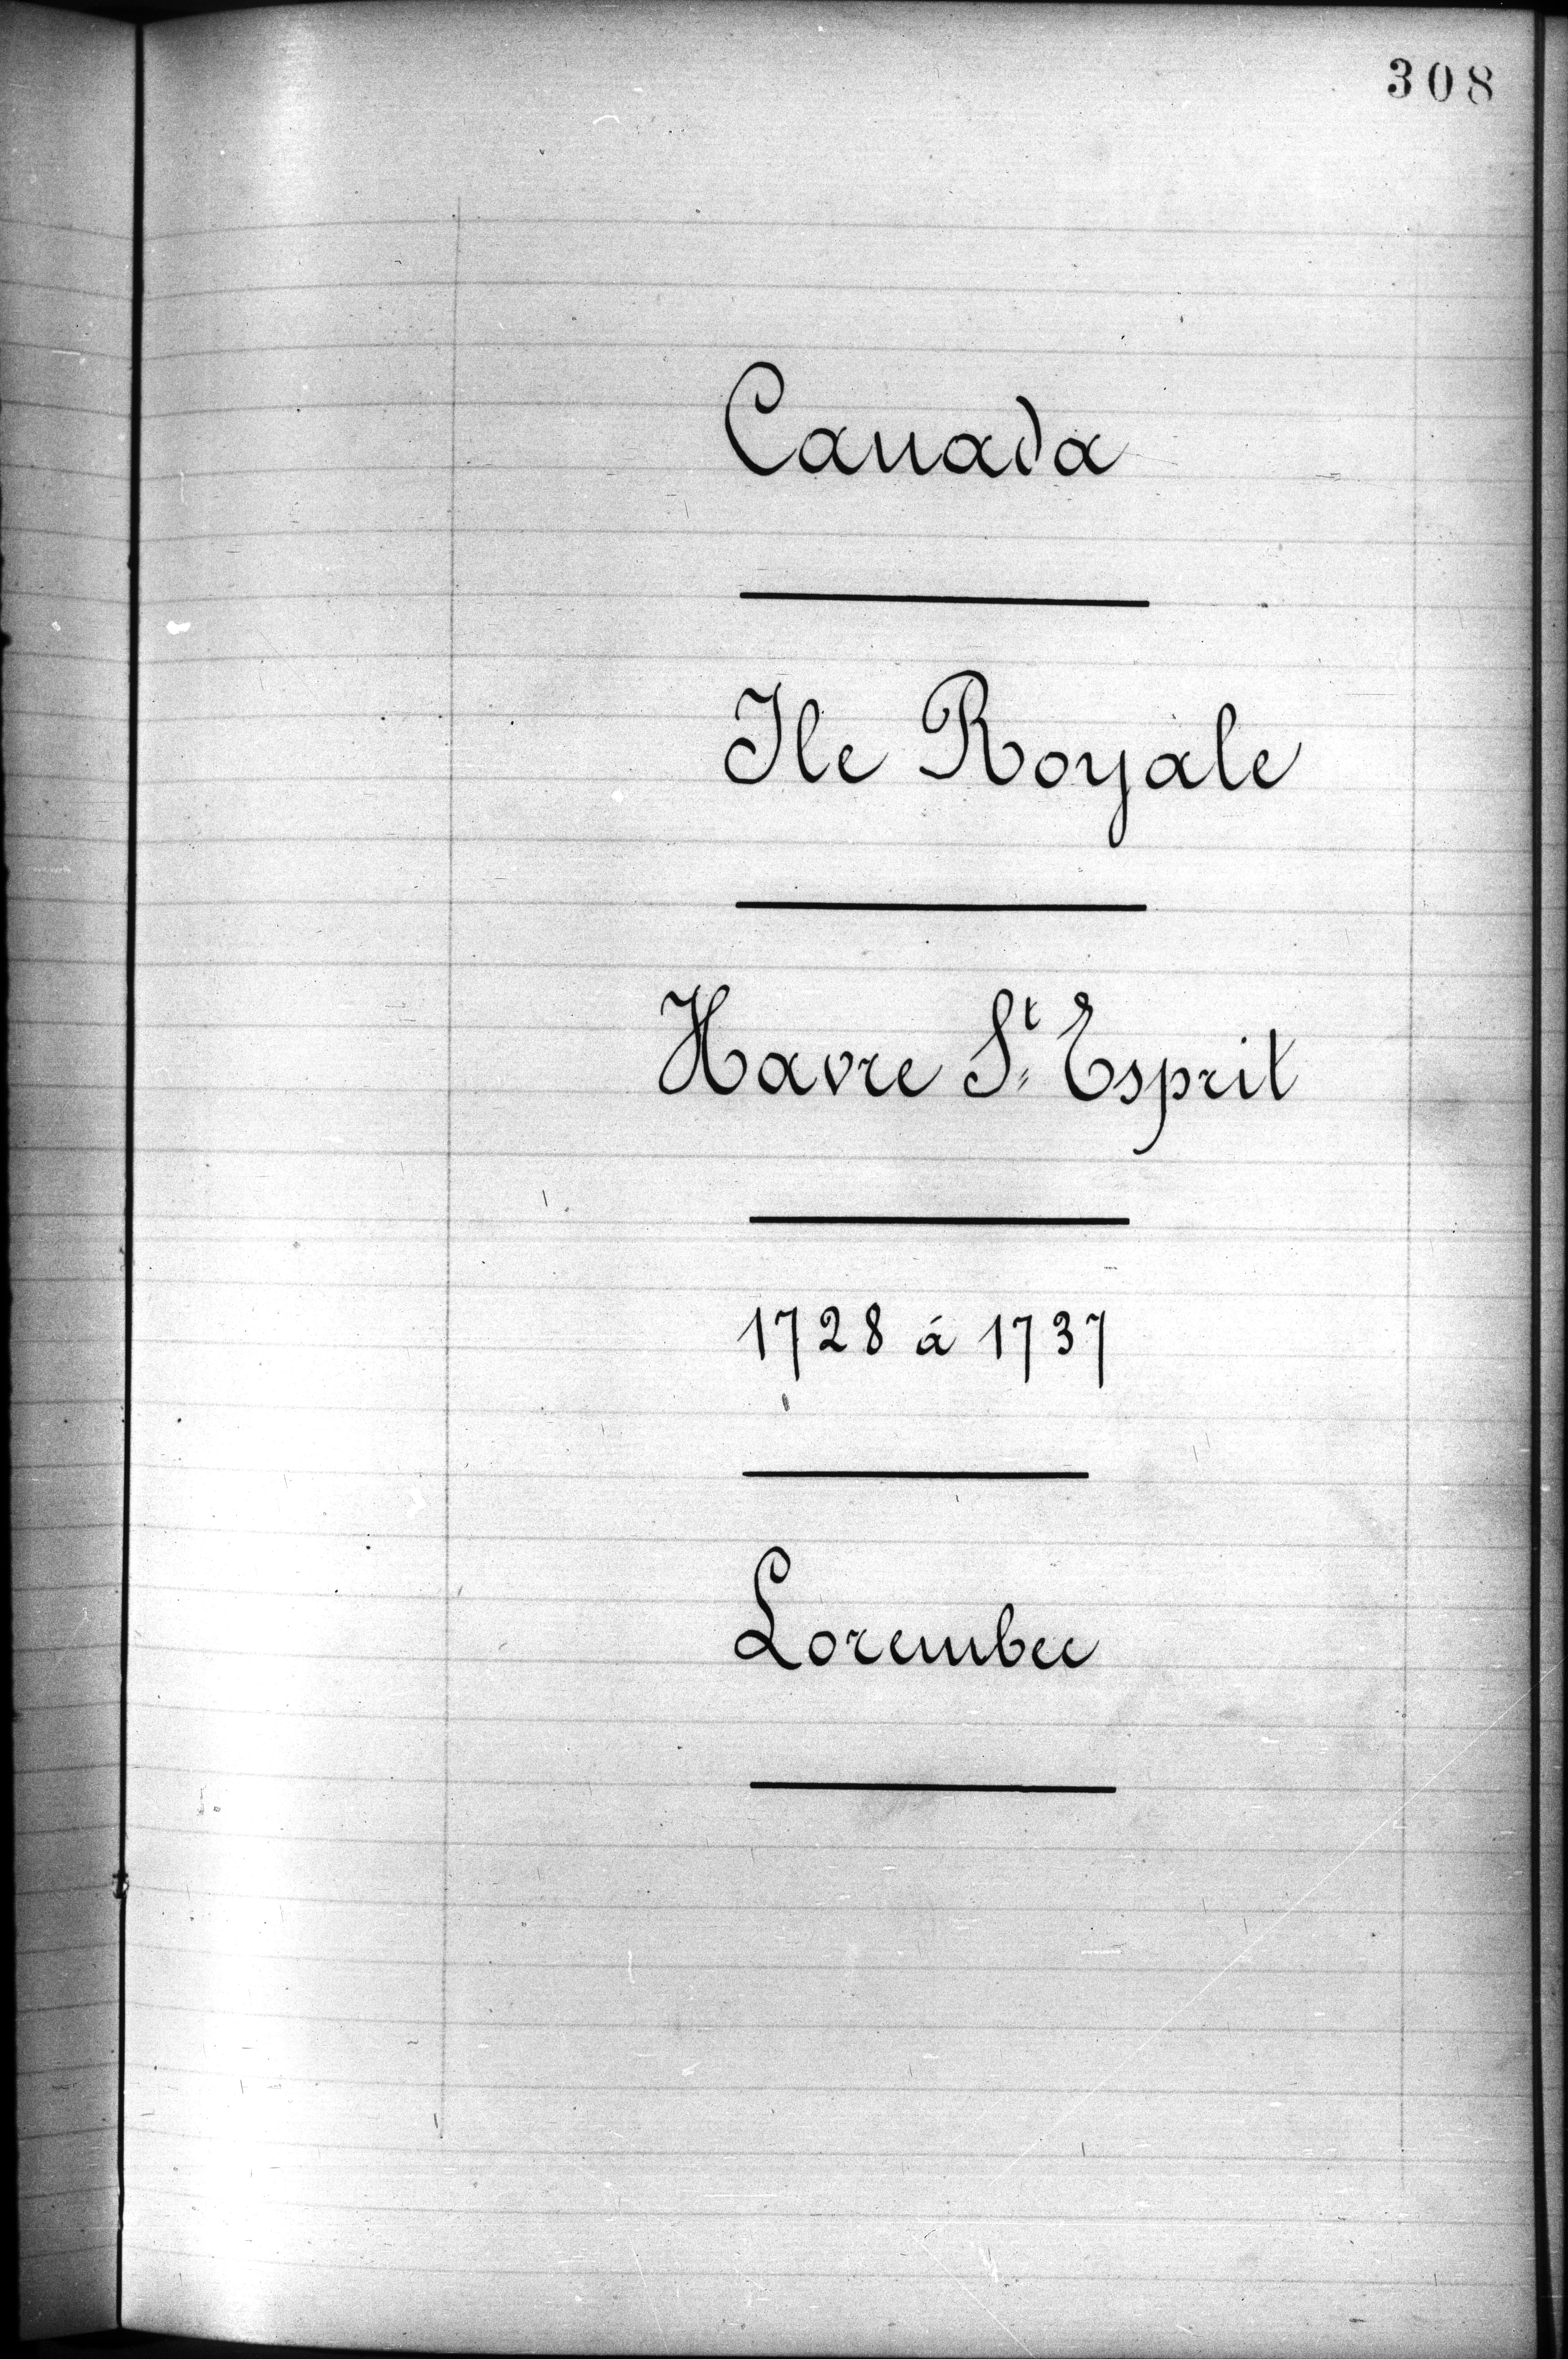 308
Canada
Ile Royale
Havre St Esprit
1728 à 1737
Lorembec